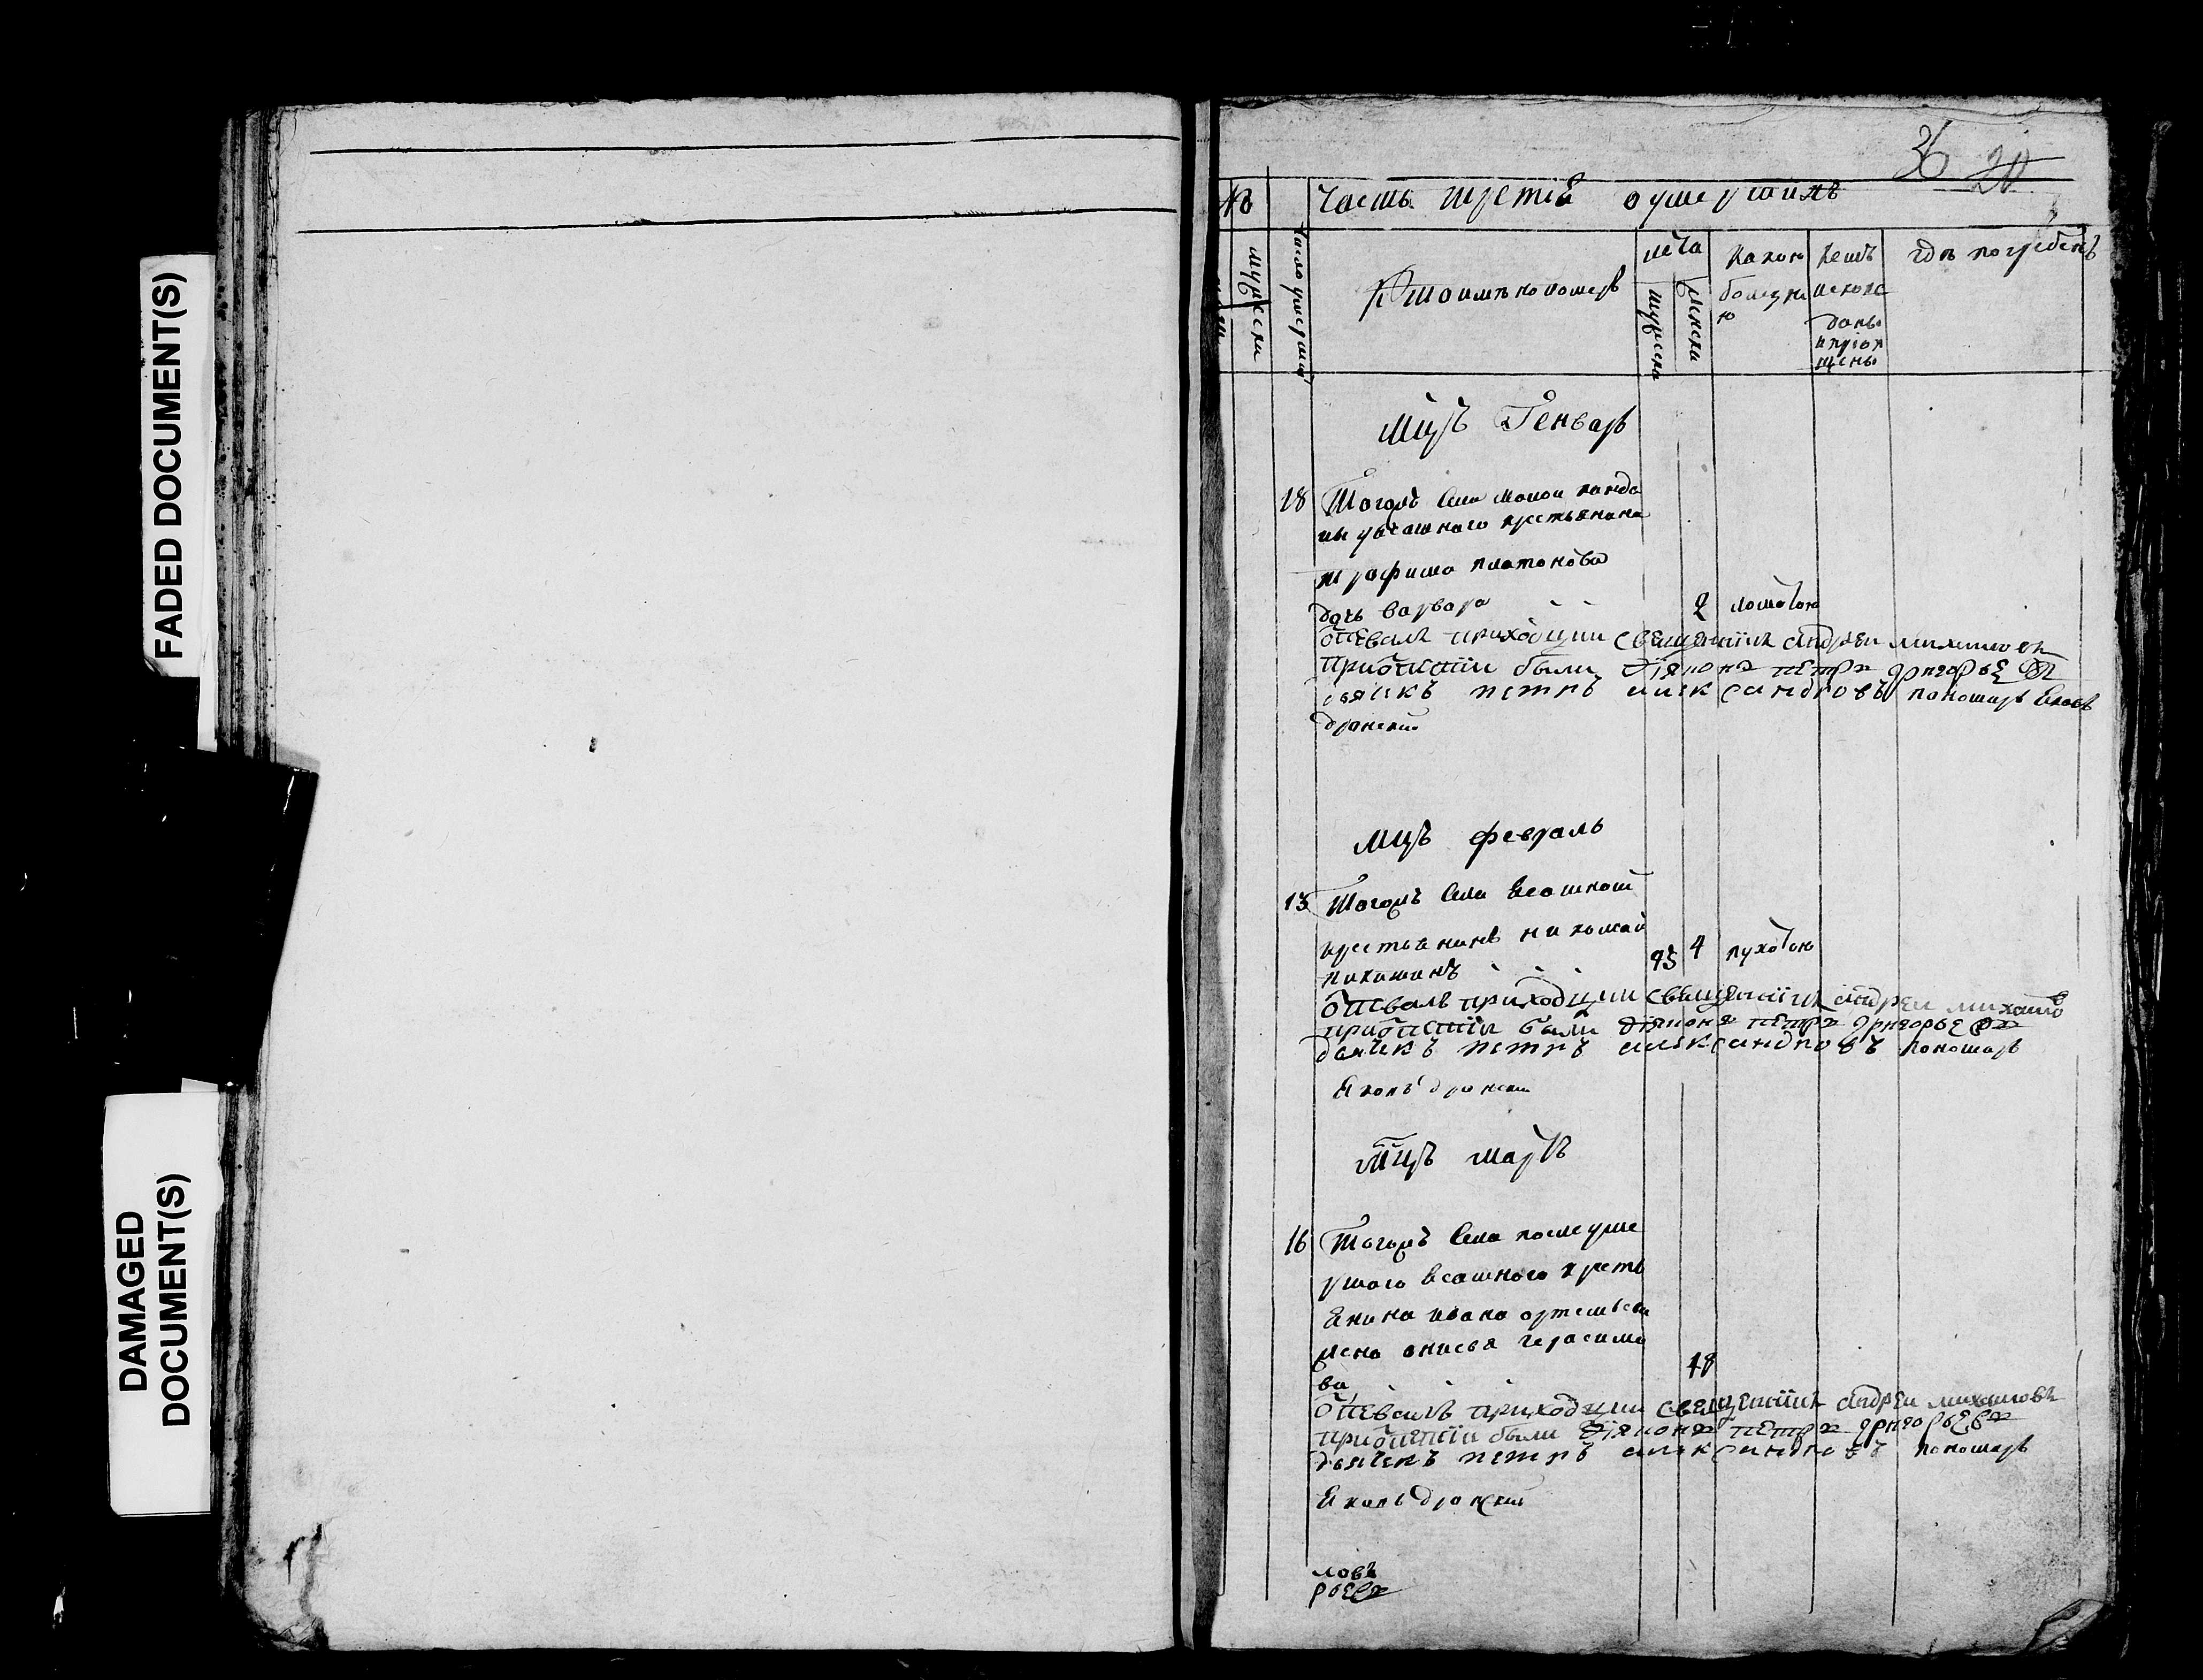 FADED DOCUMENT(S)
DAMAGED
DOCUMENT(S)
36 20
№
Часть третіѣ о умершихъ
мужски
число умершихъ
Кто имянно померъ
лета
мужска
женска
какою
болезни
ю
кемъ
исповѣ
даны
и пріоб
щены
гдѣ погребенъ
Мцъ Генварь
18 Тогожъ села
ны ясашнаго крестьянина
трофима платонова
дочь варвара 2
отпевалъ приходции священникъ андреи михаиловъ
при отпетіи были діяконъ петръ григорьевъ
дьячекъ петръ александровъ пономарь
дронски
Мцъ февраль
13 Тогожъ села ясашной
крестьянинъ николай
никитинъ 95 4
отпевалъ приходции священникъ андреи михаило
при отпетіи были діяконъ петръ григорьевъ
дьячекъ петръ александровъ пономарь
дронски
Мцъ мартъ
16 Тогожъ села после уме
ршаго ясашного кресть
янина ивана артемьева
жена анисья герасимо
ва 48
отпевалъ приходции священникъ андреи михаиловъ
при отпетіи были діяконъ петръ григорьевъ
дьячекъ петръ александровъ пономарь
дронски
ловъ
рьевъ